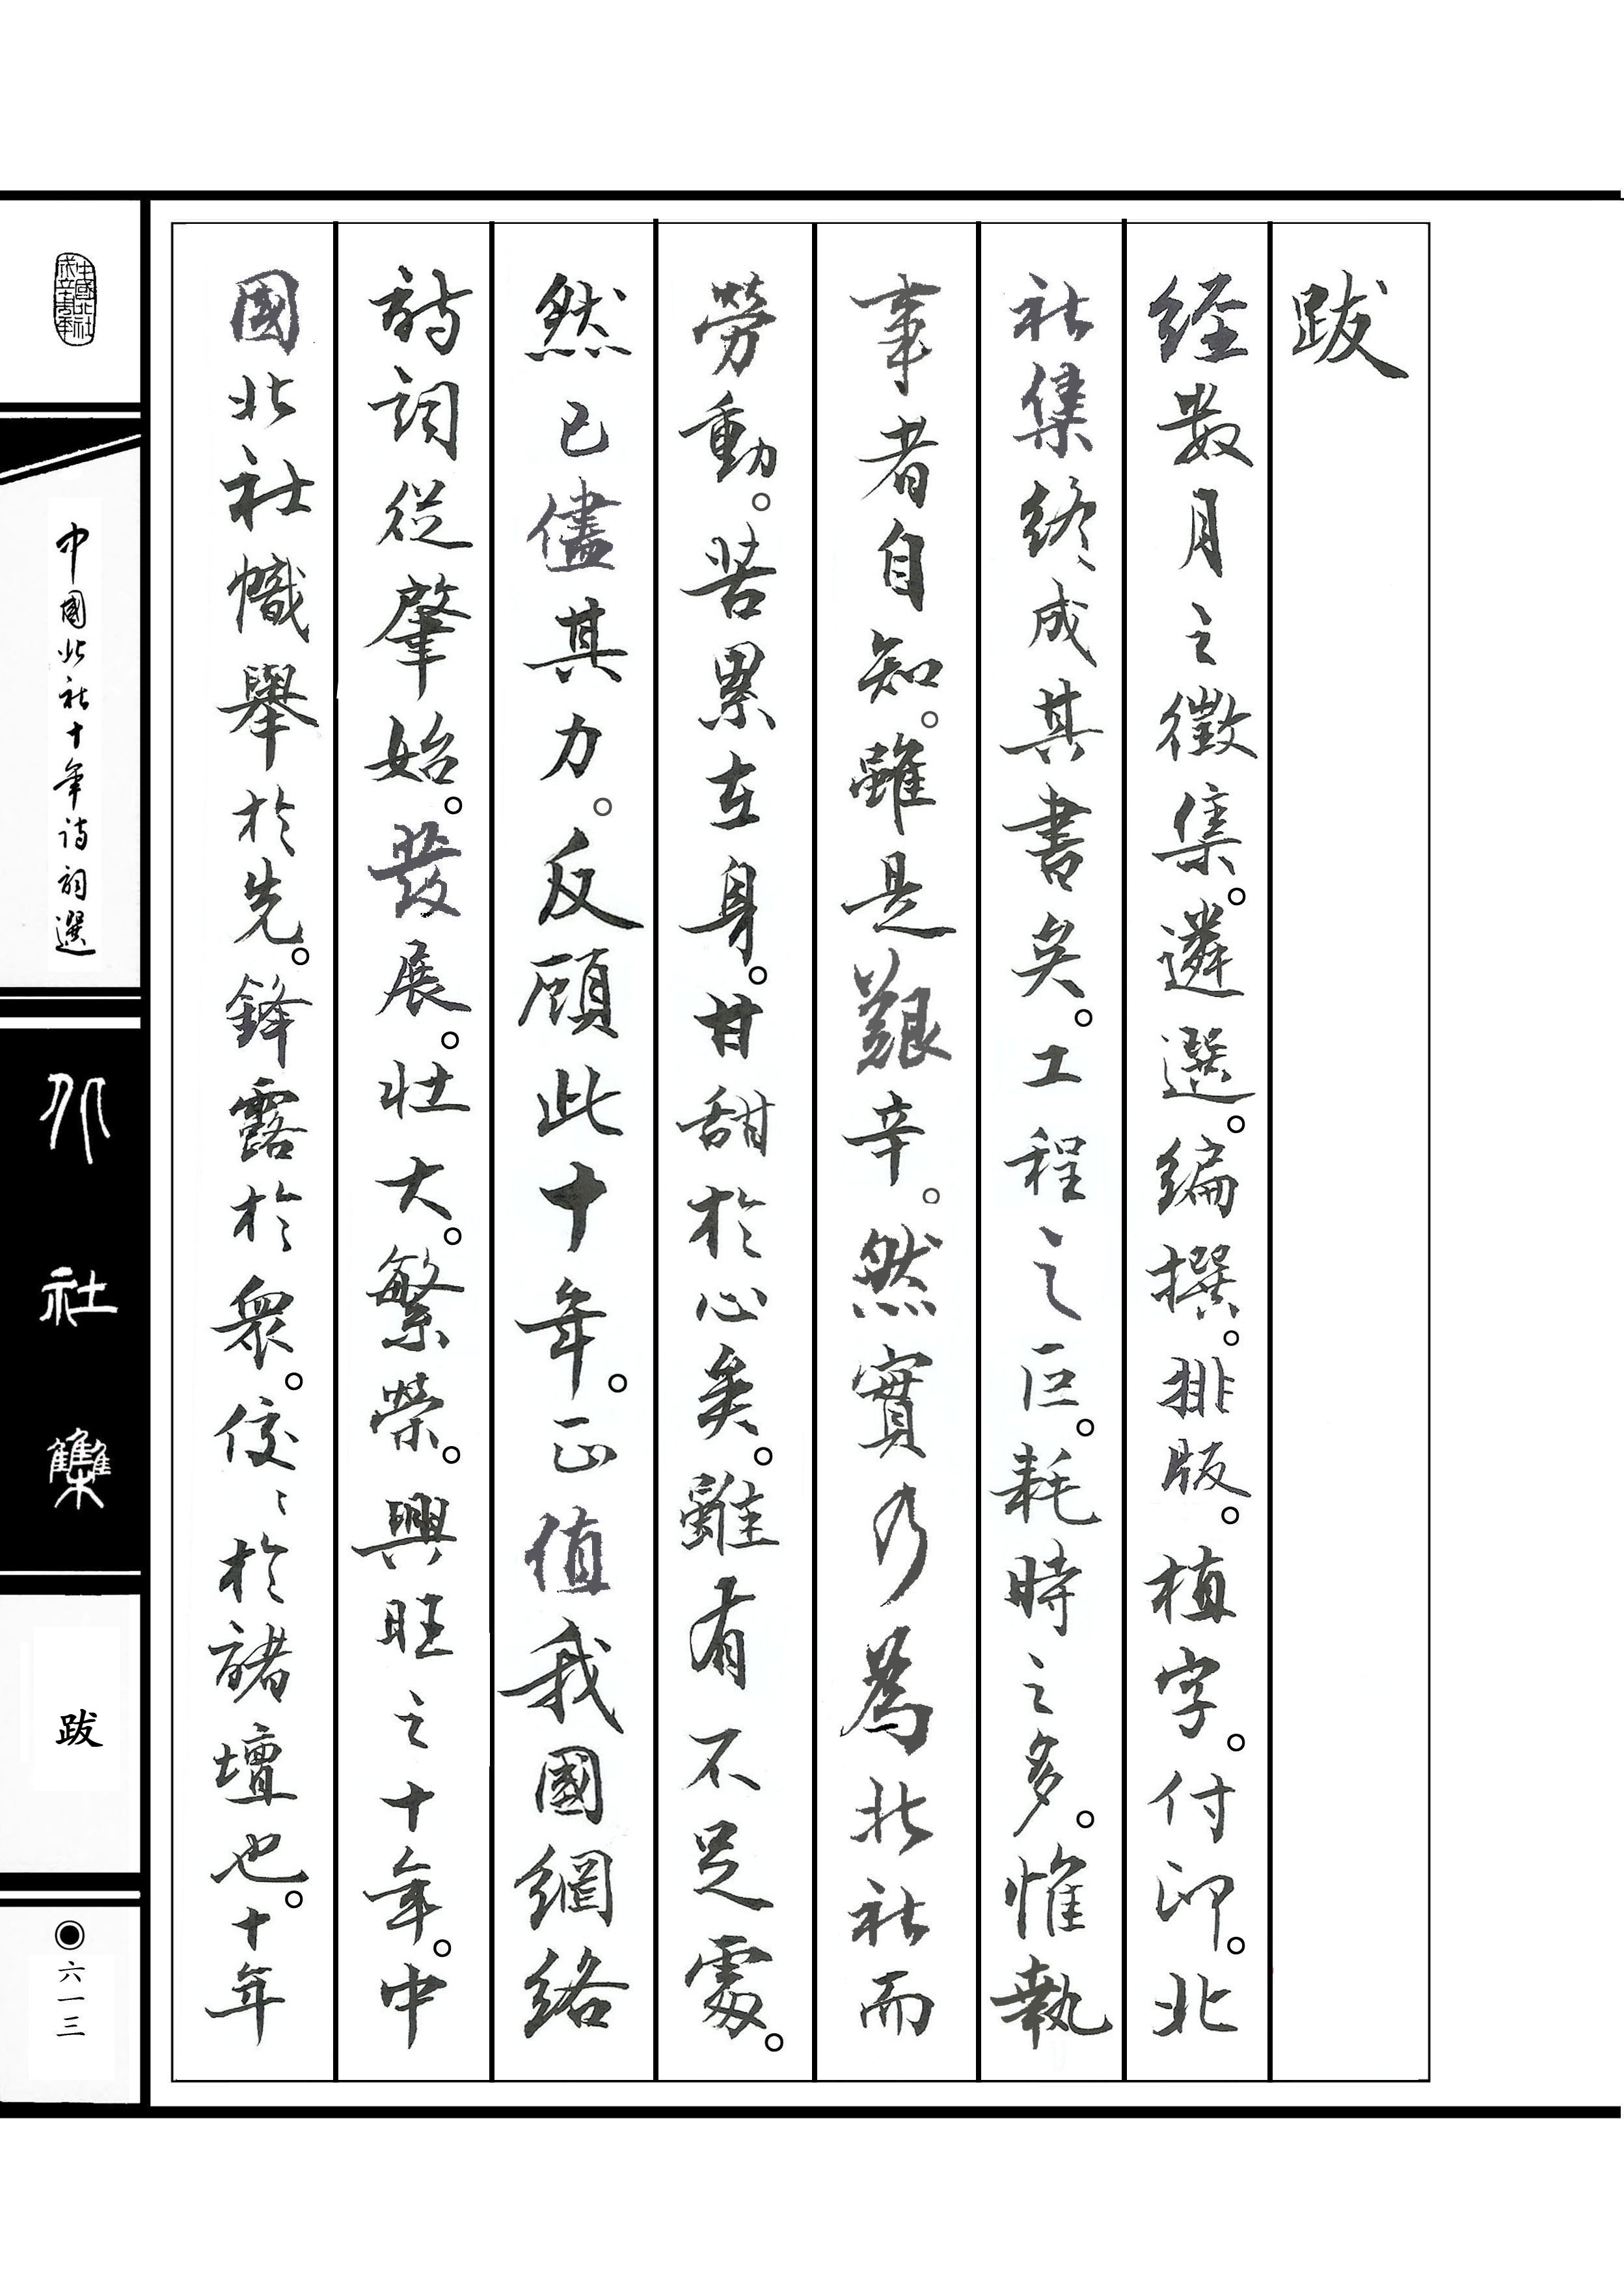 跋
経數月之徵集。遴選。编撰。排版。植字。付印。北
社集终成其書矣。工程之巨。耗時之多。惟執
事者自知。雖是艱辛。然實乃為北社而
勞動。苦累在身。甘甜於心矣。雖有不足處。
然已儘其力。反顧此十年。正值我國網络
詩詞從肇始。發展。壮大。繁榮。興旺之十年。中
國北社幟舉於先。鋒露於衆。佼〻於諸壇也。十年
中國北社十年詩詞選
北社集
跋
六一三